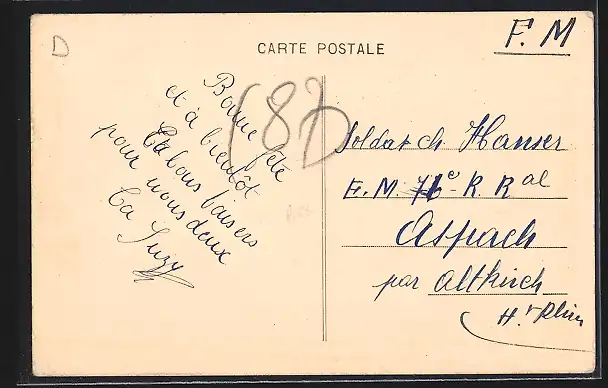 D
CARTE POSTALE
F. M
(87)
Bonne fête
et à bientôt
Cabous baisers
pour nous deux
Ta Suzy
Soldat ch Hanser
E. M. R. Ral
Aspach
par Altkirch
Ht Rhin